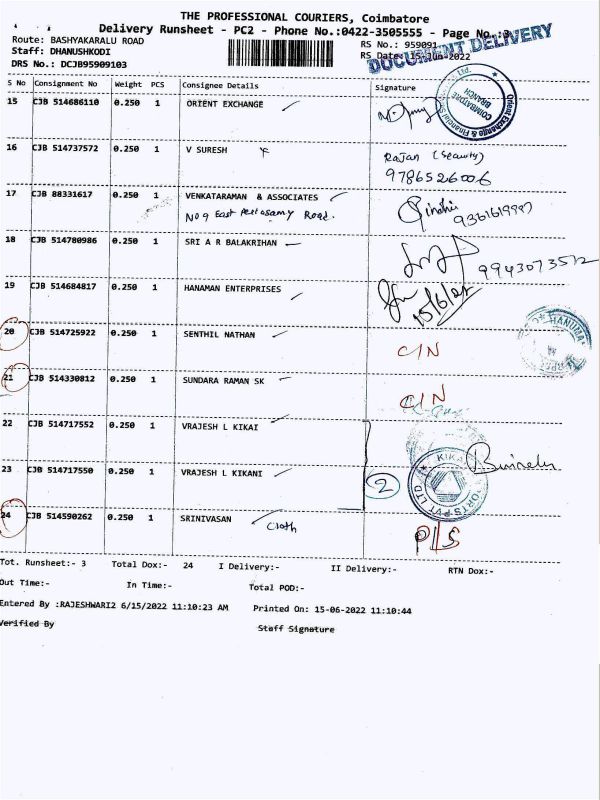 THE PROFESSIONAL COURIERS, Coimbatore
Delivery Runsheet - PC2 - Phone No.:0422-3505555 - Page No.:3
Route: BASHYAKARALU ROAD RS No.: 959091
Staff: DHANUSHKODI RS Date: 15-Jun-2022
DOCUMENT DELIVERY
DRS No.: DCJB95909103
S No Consignment No Weight PCS Consignee Details Signature
15 CJB 514686110 0.250 1 ORIENT EXCHANGE
Orient Exchange & Financial
COIMBATORE
BRANCH
16 CJB 514737572 0.250 1 V SURESH Rajan (Security)
9786526006
17 CJB 88331617 0.250 1 VENKATARAMAN & ASSOCIATES
No 9 East Periasamy Road.
18 CJB 514780986 0.250 1 SRI A R BALAKRIHAN
19 CJB 514684817 0.250 1 HANAMAN ENTERPRISES
15/6/22
20 CJB 514725922 0.250 1 SENTHIL NATHAN C/N
21 CJB 514330812 0.250 1 SUNDARA RAMAN SK C/N
22 CJB 514717552 0.250 1 VRAJESH L KIKAI
23 CJB 514717550 0.250 1 VRAJESH L KIKANI 2
24 CJB 514590262 0.250 1 SRINIVASAN
Cloth P/S
Tot. Runsheet:- 3 Total Dox:- 24 I Delivery:- II Delivery:- RTN Dox:-
Out Time:- In Time:- Total POD:-
Entered By :RAJESHWARI2 6/15/2022 11:10:23 AM Printed On: 15-06-2022 11:10:44
Verified By Staff Signature